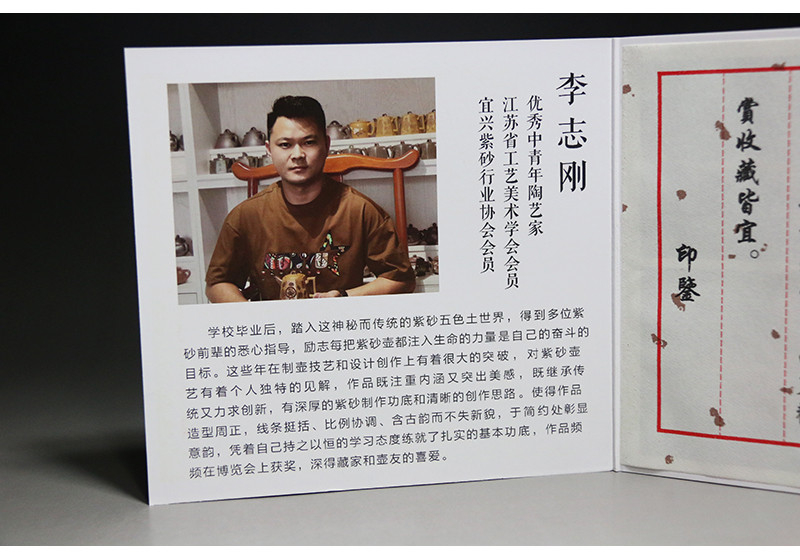 李志刚
优秀中青年陶艺家
江苏省工艺美术学会会员
宜兴紫砂行业协会会员
学校毕业后，踏入这神秘而传统的紫砂五色土世界，得到多位紫
砂前辈的悉心指导，励志每把紫砂壶都注入生命的力量是自己的奋斗的
目标。这些年在制壶技艺和设计创作上有着很大的突破，对紫砂壶
艺有着个人独特的见解，作品既注重内涵又突出美感，既继承传
统又力求创新，有深厚的紫砂制作功底和清晰的创作思路。使得作品
造型周正，线条挺括、比例协调、含古韵而不失新貌，于简约处彰显
意韵，凭着自己持之以恒的学习态度练就了扎实的基本功底，作品频
频在博览会上获奖，深得藏家和壶友的喜爱。
賞收藏皆宜。
印鑒